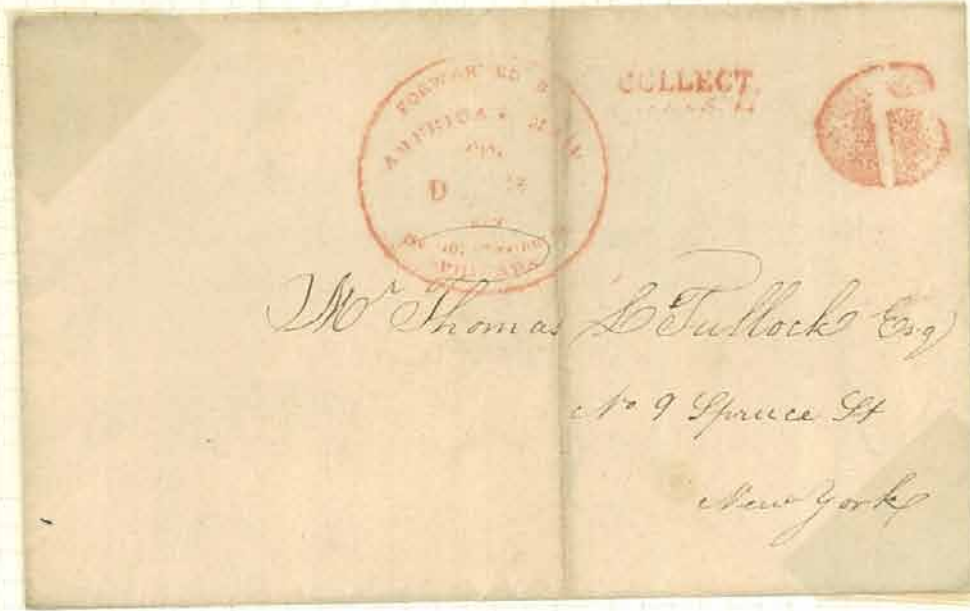 FORWARDED B
AMERICA MAIL
D
PHILADA
COLLECT.
Mr Thomas L Tullock Esq
No 9 Spruce St
New York